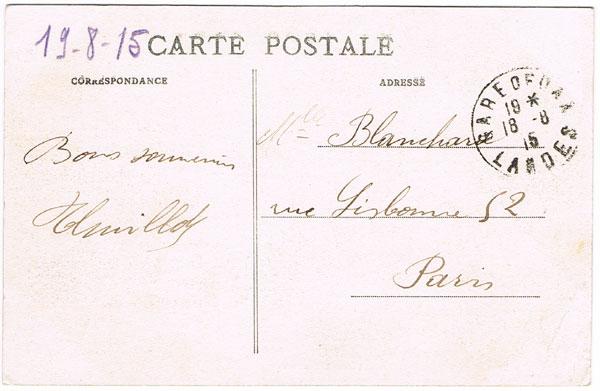 19-8-15
CARTE POSTALE
CORRESPONDANCE
ADRESSE
GARE DE DAX
19 *
18 - 8
15
LANDES
Bons souvenirs
Mlle Blanchard
rue Lisbonne 52
Paris